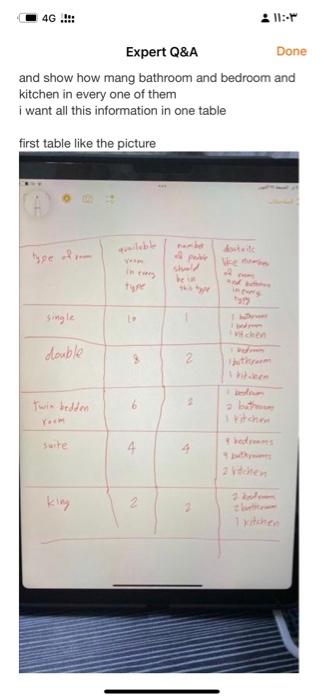 4G
١١:٠٣
Expert Q&A
Done
and show how mang bathroom and bedroom and
kitchen in every one of them
i want all this information in one table
first table like the picture
type of room
available
room
in every
type
number
of people
should
be in
this type
like number
of room
in every
type
single
10
1
1 bathroom
1 bedroom
1 kitchen
double
8
2
1 bedroom
1 bathroom
1 kitchen
Twin bedden
room
6
2
1 bedroom
2 bathroom
1 kitchen
suite
4
4
bedrooms
bathrooms
2 kitchen
king
2
2
2 bedroom
2 bathroom
1 kitchen